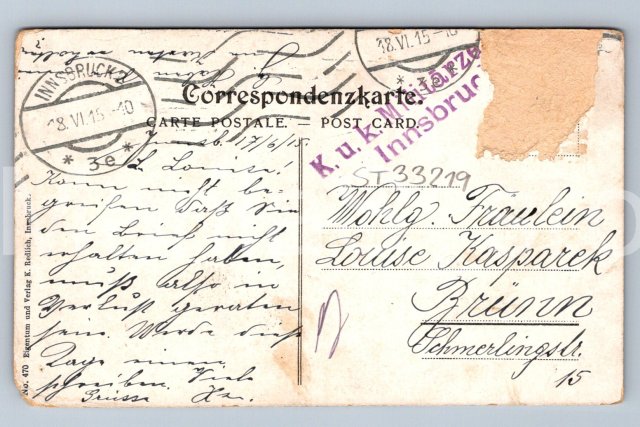 INNSBRUCK 2
18.VI.15-10
* 3e *
18.VI.15-10
* 3e *
Correspondenzkarte.
CARTE POSTALE. — POST CARD.
K. u. k. Militärze
Innsbruc
ST33219
Innsb. 17/6/15.
L. Louise!
Kann nicht be-
greifen daß Sie
den Brief nicht
erhalten haben,
muß also in
Verlust geraten
sein. Werde diese
Tage einen
schreiben. Viele
Grüsse
Wohlg. Fräulein
Louise Kasparek
Brünn
Schmerlingstr.
15
No. 470 Eigentum und Verlag K. Redlich, Innsbruck.